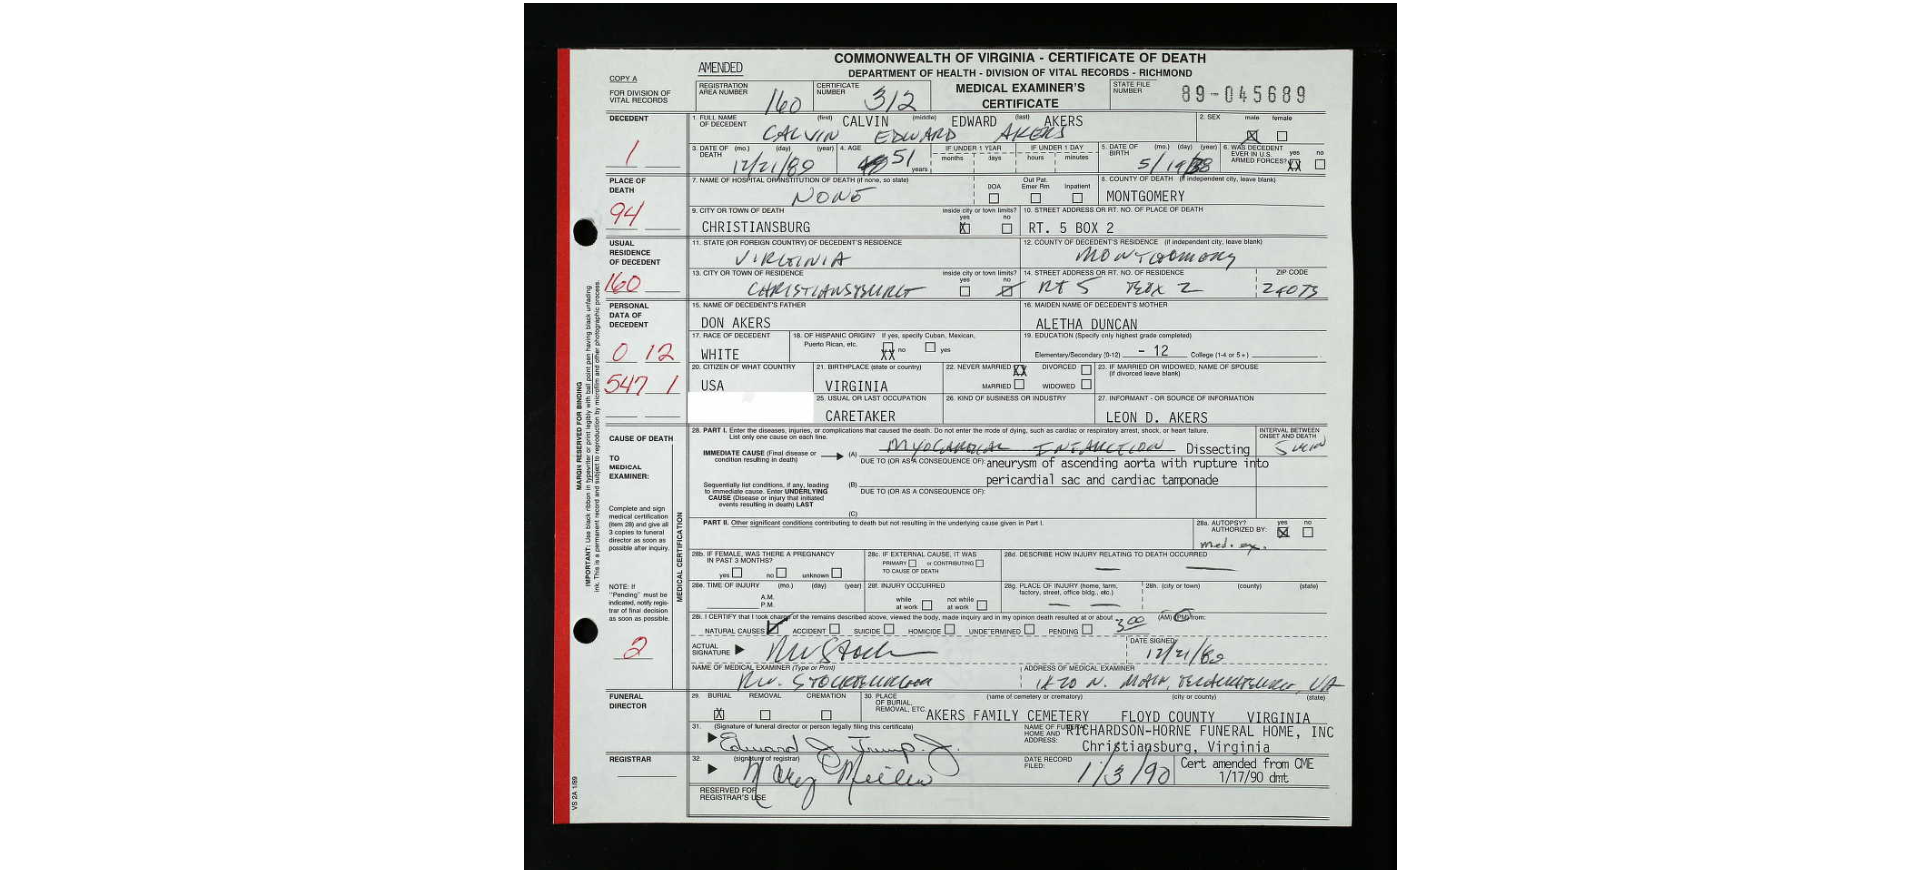 COMMONWEALTH OF VIRGINIA - CERTIFICATE OF DEATH
AMENDED
DEPARTMENT OF HEALTH - DIVISION OF VITAL RECORDS - RICHMOND
COPY A
FOR DIVISION OF VITAL RECORDS
REGISTRATION AREA NUMBER 160
CERTIFICATE NUMBER 312
MEDICAL EXAMINER'S CERTIFICATE
STATE FILE NUMBER 89-045689
DECEDENT
1. FULL NAME OF DECEDENT (first) CALVIN (middle) EDWARD (last) AKERS
CALVIN EDWARD AKERS
2. SEX male X female
1
3. DATE OF DEATH (mo.) (day) (year) 12/21/89
4. AGE 51 years
IF UNDER 1 YEAR months days
IF UNDER 1 DAY hours minutes
5. DATE OF BIRTH (mo.) (day) (year) 5/19/38
6. WAS DECEDENT EVER IN U.S. ARMED FORCES? yes XX no
PLACE OF DEATH
94
7. NAME OF HOSPITAL OR INSTITUTION OF DEATH (if none, so state) NONE
DOA Out Pat. Emer Rm Inpatient
8. COUNTY OF DEATH (if independent city, leave blank) MONTGOMERY
9. CITY OR TOWN OF DEATH CHRISTIANSBURG
inside city or town limits? yes X no
10. STREET ADDRESS OR RT. NO. OF PLACE OF DEATH RT. 5 BOX 2
USUAL RESIDENCE OF DECEDENT
160
11. STATE (OR FOREIGN COUNTRY) OF DECEDENT'S RESIDENCE VIRGINIA
12. COUNTY OF DECEDENT'S RESIDENCE (if independent city, leave blank) MONTGOMERY
13. CITY OR TOWN OF RESIDENCE CHRISTIANSBURG
inside city or town limits? yes no X
14. STREET ADDRESS OR RT. NO. OF RESIDENCE RT 5 BOX 2
ZIP CODE 24073
PERSONAL DATA OF DECEDENT
0 12
547 1
15. NAME OF DECEDENT'S FATHER DON AKERS
16. MAIDEN NAME OF DECEDENT'S MOTHER ALETHA DUNCAN
17. RACE OF DECEDENT WHITE
18. OF HISPANIC ORIGIN? If yes, specify Cuban, Mexican, Puerto Rican, etc. XX no yes
19. EDUCATION (Specify only highest grade completed)
Elementary/Secondary (0-12) - 12 College (1-4 or 5+)
20. CITIZEN OF WHAT COUNTRY USA
21. BIRTHPLACE (state or country) VIRGINIA
22. NEVER MARRIED XX DIVORCED
MARRIED WIDOWED
23. IF MARRIED OR WIDOWED, NAME OF SPOUSE (if divorced leave blank)
25. USUAL OR LAST OCCUPATION CARETAKER
26. KIND OF BUSINESS OR INDUSTRY
27. INFORMANT - OR SOURCE OF INFORMATION LEON D. AKERS
CAUSE OF DEATH
TO MEDICAL EXAMINER:
Complete and sign medical certification (item 28) and give all 3 copies to funeral director as soon as possible after inquiry.
NOTE: If "Pending" must be indicated, notify registrar of final decision as soon as possible.
2
MEDICAL CERTIFICATION
28. PART I. Enter the diseases, injuries, or complications that caused the death. Do not enter the mode of dying, such as cardiac or respiratory arrest, shock, or heart failure.
List only one cause on each line.
INTERVAL BETWEEN ONSET AND DEATH
IMMEDIATE CAUSE (Final disease or condition resulting in death) (A) MYOCARDIAL INFARCTION Dissecting
DUE TO (OR AS A CONSEQUENCE OF): aneurysm of ascending aorta with rupture into
pericardial sac and cardiac tamponade
Sequentially list conditions, if any, leading to immediate cause. Enter UNDERLYING CAUSE (Disease or injury that initiated events resulting in death) LAST
(B)
DUE TO (OR AS A CONSEQUENCE OF):
(C)
PART II. Other significant conditions contributing to death but not resulting in the underlying cause given in Part I.
28a. AUTOPSY? yes X no
AUTHORIZED BY: med. ex.
28b. IF FEMALE, WAS THERE A PREGNANCY IN PAST 3 MONTHS? yes no unknown
28c. IF EXTERNAL CAUSE, IT WAS PRIMARY or CONTRIBUTING TO CAUSE OF DEATH
28d. DESCRIBE HOW INJURY RELATING TO DEATH OCCURRED
28e. TIME OF INJURY (mo.) (day) (year) A.M. P.M.
28f. INJURY OCCURRED while at work not while at work
28g. PLACE OF INJURY (home, farm, factory, street, office bldg., etc.)
28h. (city or town) (county) (state)
28i. I CERTIFY that I took charge of the remains described above, viewed the body, made inquiry and in my opinion death resulted at or about 3:00 (AM) (PM) from:
NATURAL CAUSES ACCIDENT SUICIDE HOMICIDE UNDETERMINED PENDING
ACTUAL SIGNATURE
DATE SIGNED: 12/21/89
NAME OF MEDICAL EXAMINER (Type or Print)
ADDRESS OF MEDICAL EXAMINER
FUNERAL DIRECTOR
29. BURIAL X REMOVAL CREMATION
30. PLACE OF BURIAL, REMOVAL, ETC. (name of cemetery or crematory) (city or county) (state)
AKERS FAMILY CEMETERY FLOYD COUNTY VIRGINIA
31. (Signature of funeral director or person legally filing this certificate)
Edward J. Trump, Jr.
NAME OF FUNERAL HOME AND ADDRESS: RICHARDSON-HORNE FUNERAL HOME, INC
Christiansburg, Virginia
REGISTRAR
32. (signature of registrar)
DATE RECORD FILED: 1/3/90
Cert amended from CME
1/17/90 dmt
RESERVED FOR REGISTRAR'S USE
VS 2A 1/89
MARGIN RESERVED FOR BINDING
IMPORTANT: Use black ribbon in typewriter or print legibly with ball point pen having black unfading ink. This is a permanent record and subject to reproduction by microfilm and other photographic process.